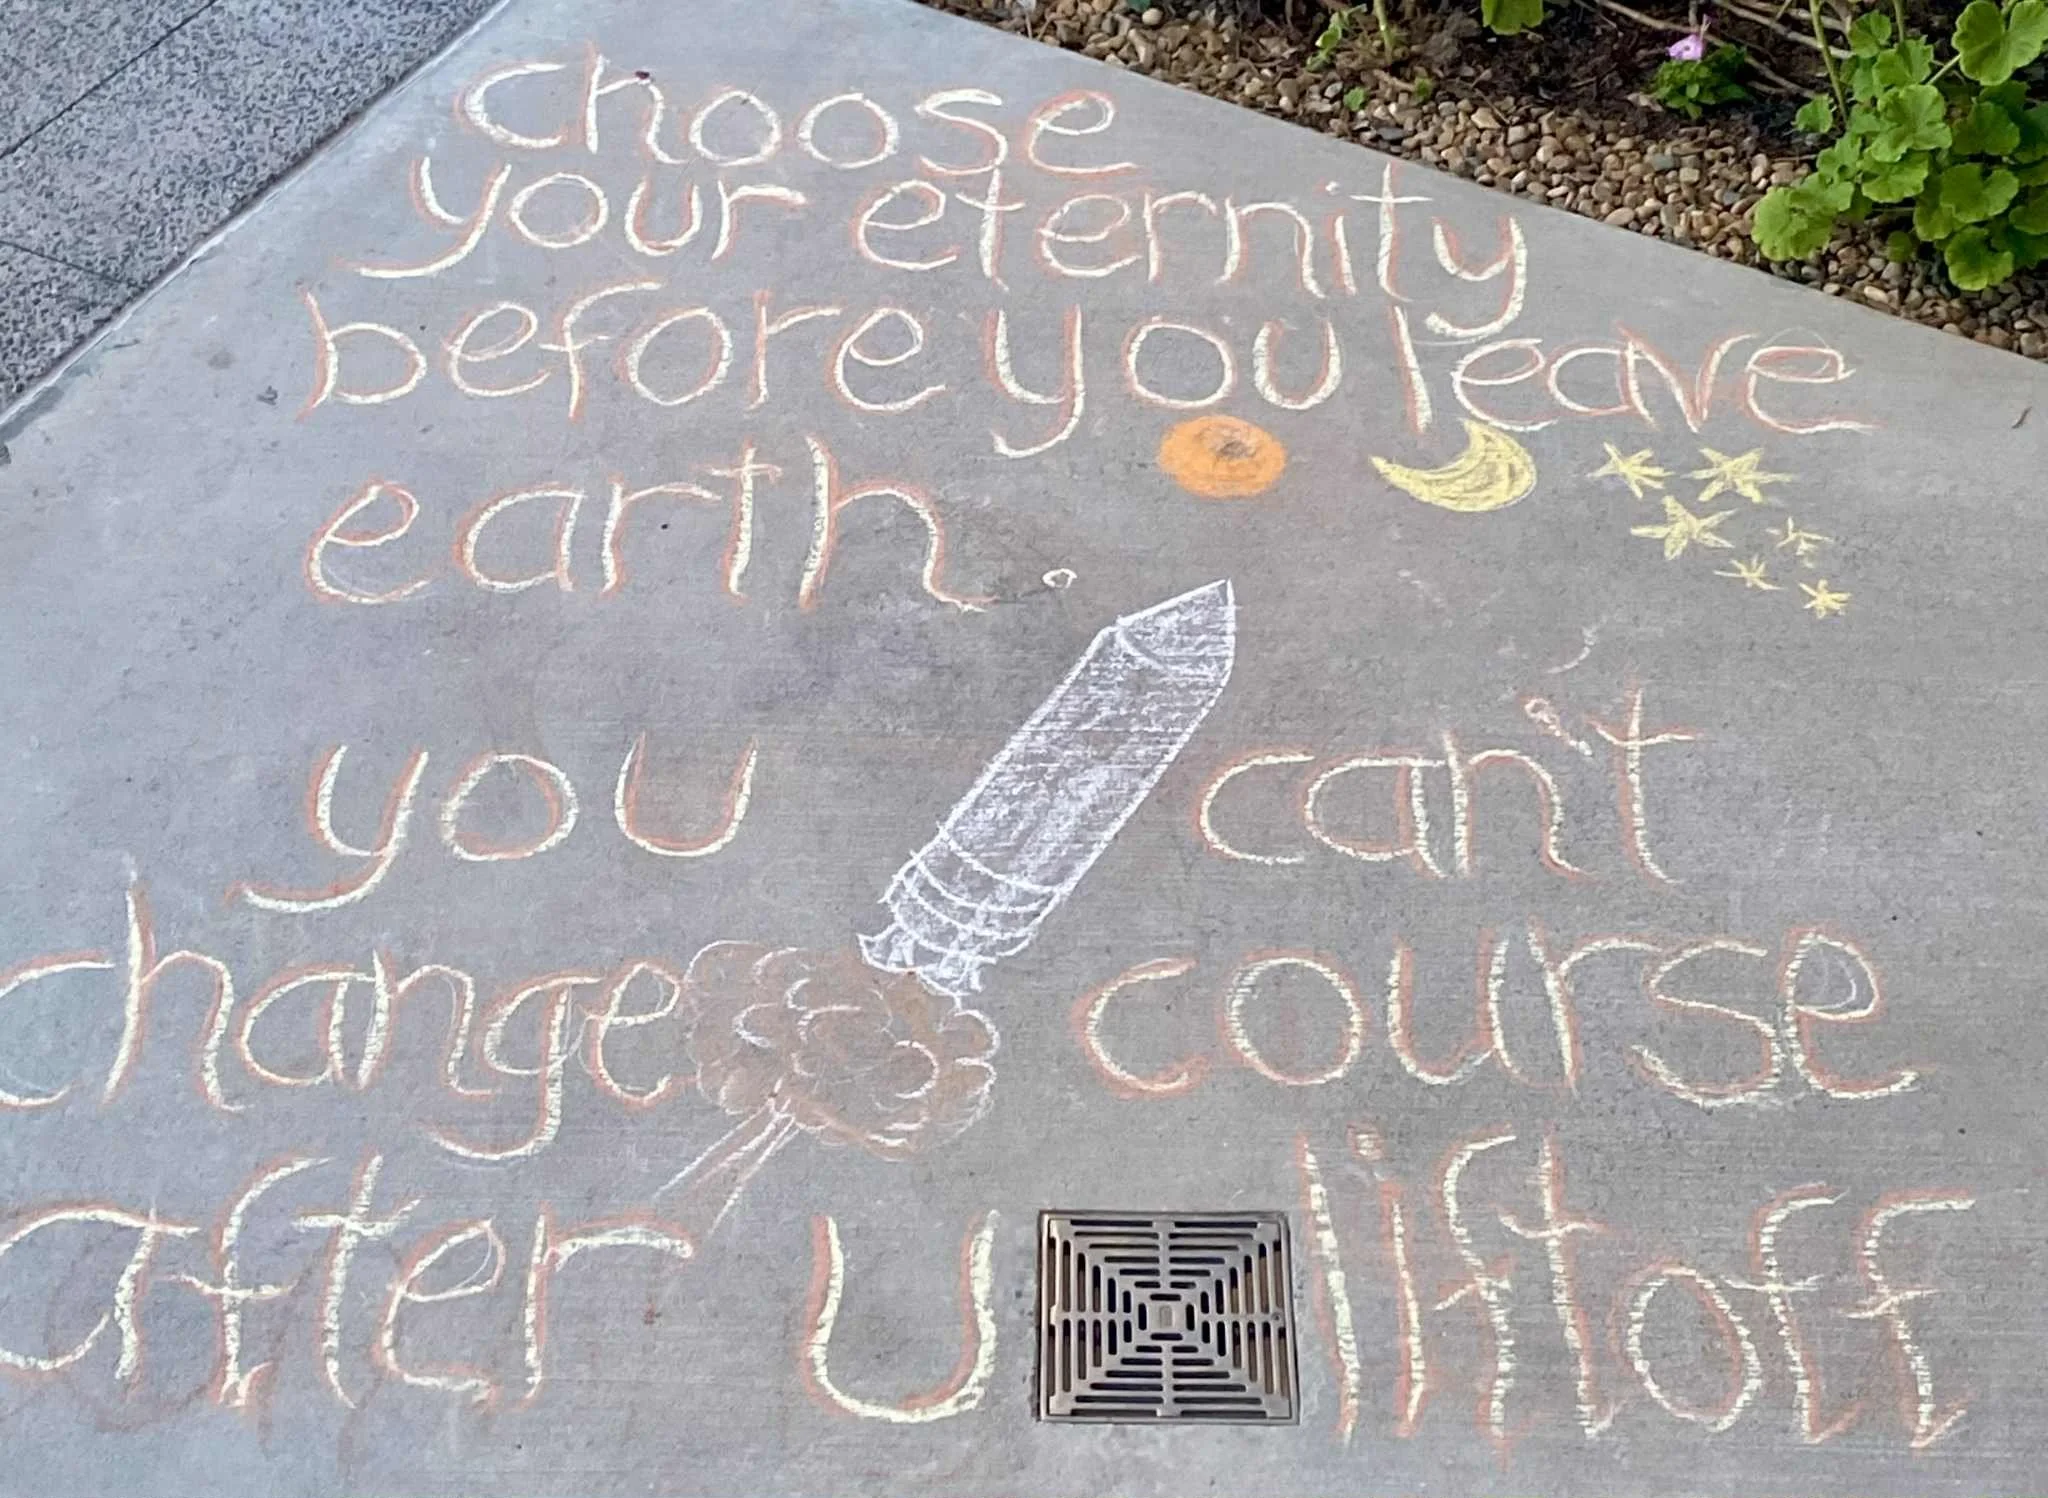 choose
your eternity
before you leave
earth.
you can't
change course
after u liftoff